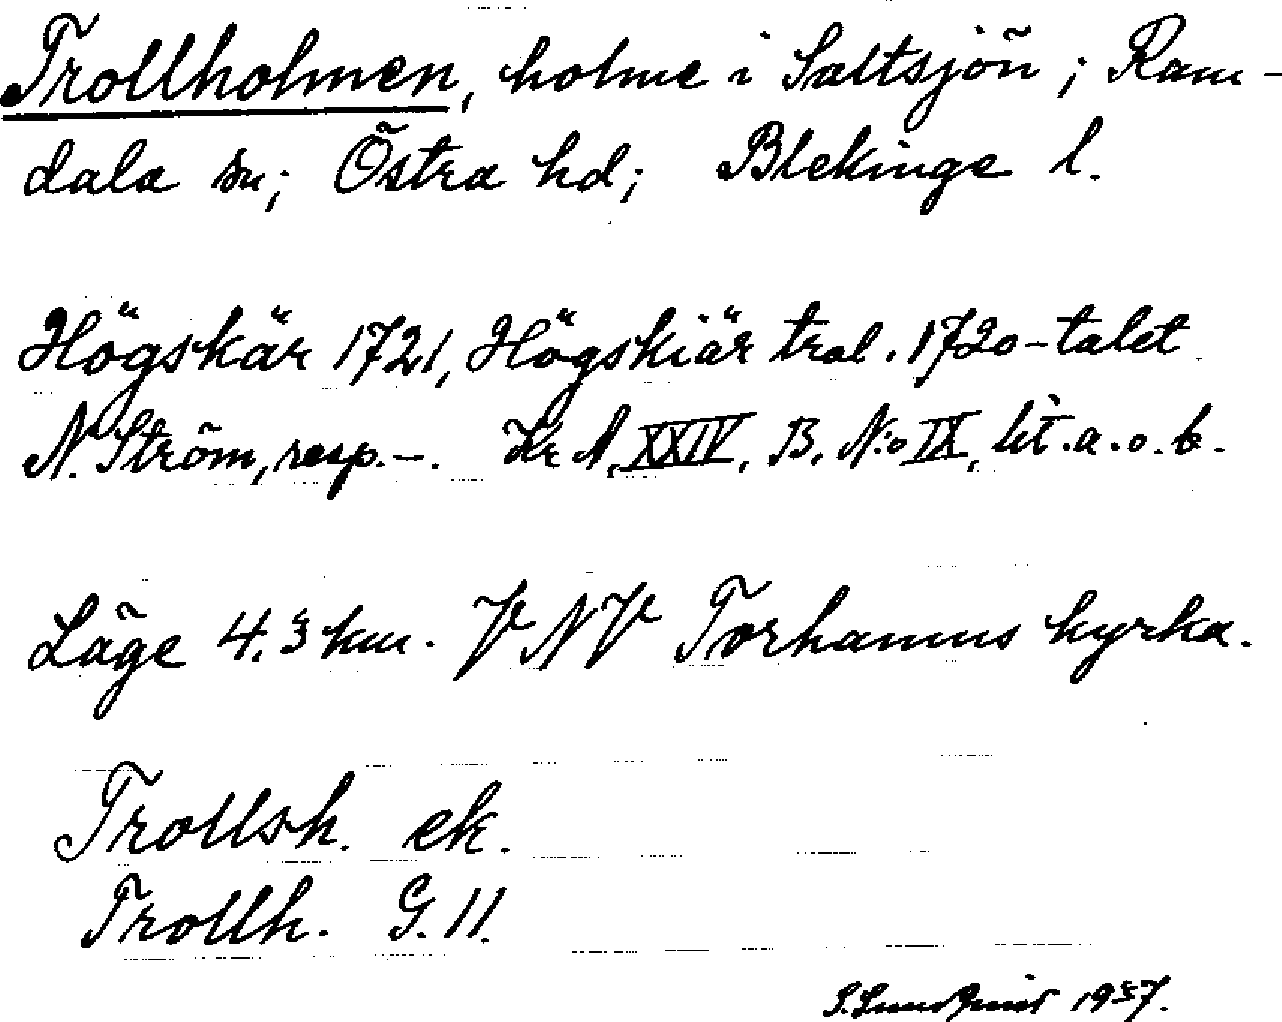 Trollholmen, holme i Saltsjön; Ram-
dala sn; Östra hd; Blekinge l.
Högskär 1721, Högskiär tral. 1720-talet
N. Ström, resp. –. Kr A, XXIV, B, N:o IX, lit. a. o. b.
Läge 4.3 km. VNV Torhamns kyrka.
Trollsh. ek.
Trollh. G. 11.
S. Lundquist 1937.